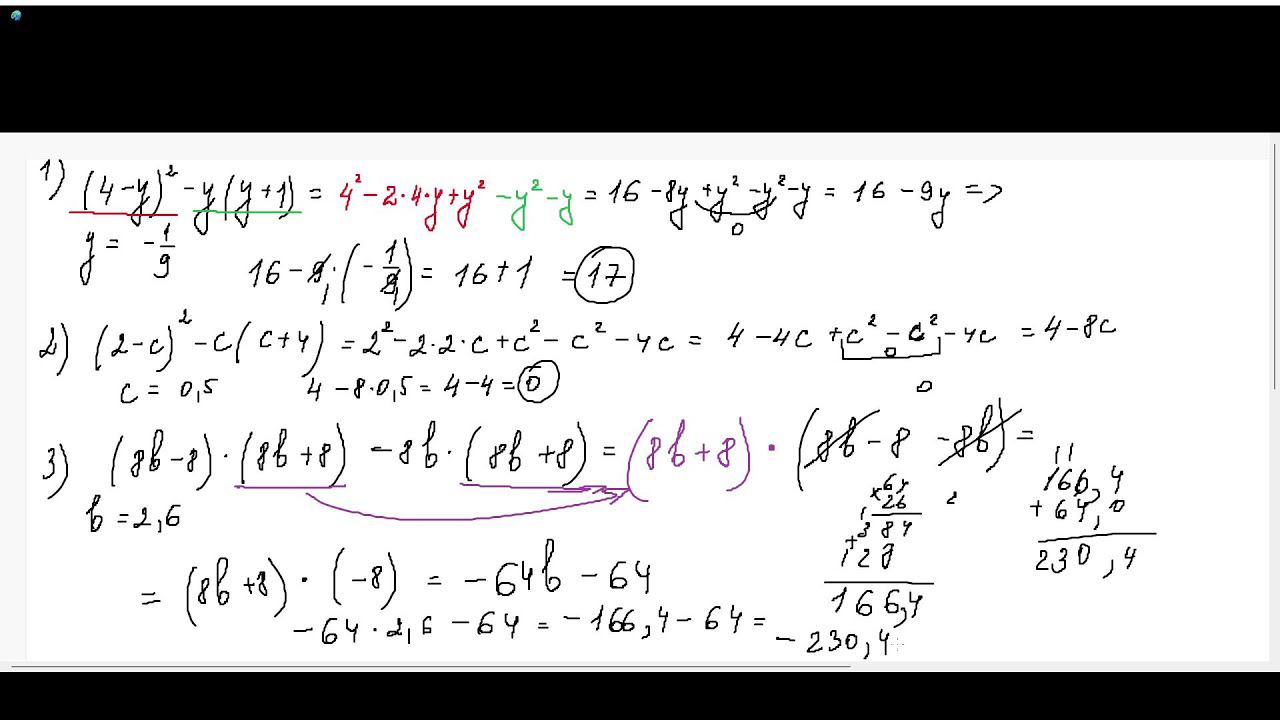 1) (4-y)² - y(y+1) = 4² - 2·4·y + y² - y² - y = 16 - 8y + y² - y² - y = 16 - 9y =>
0
y = -1/9
16 - 9·(-1/9) = 16 + 1 = 17
2) (2-c)² - c(c+4) = 2² - 2·2·c + c² - c² - 4c = 4 - 4c + c² - c² - 4c = 4 - 8c
0
c = 0,5 4 - 8·0,5 = 4 - 4 = 0 0
3) (8b-8)·(8b+8) - 8b·(8b+8) = (8b+8)·(8b - 8 - 8b) =
b = 2,6
= (8b+8)·(-8) = -64b - 64
-64·2,6 - 64 = -166,4 - 64 =
-230,4
×64
26
384
+128
166,4
2
11
166,4
+ 64,0
230,4